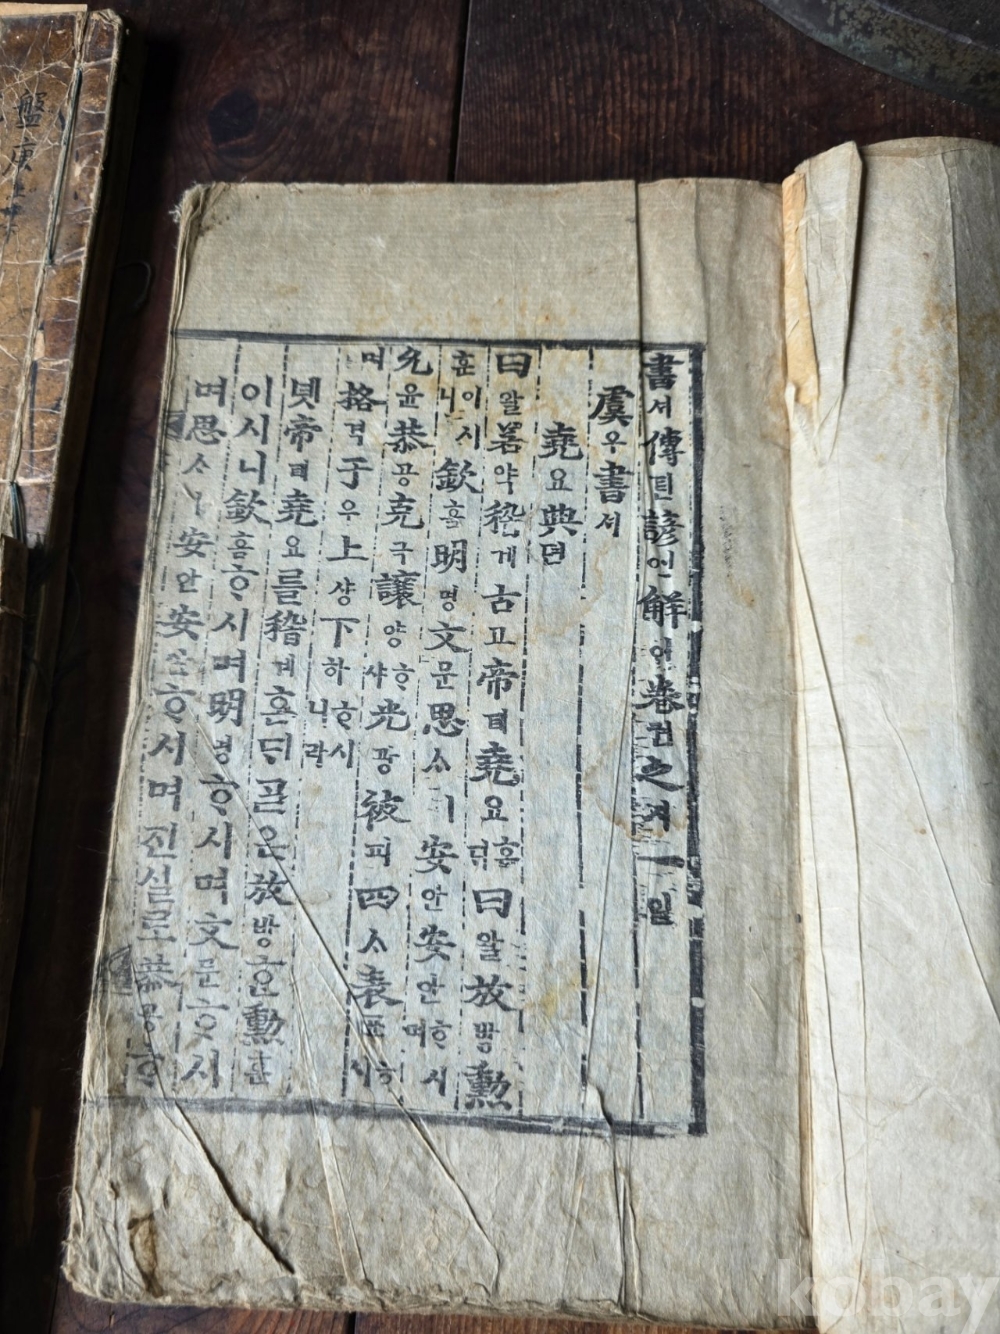 書셔傳뎐諺언解卷권之지一일
虞우書셔
堯요典뎐
曰왈若약稽계古고帝뎨堯요ᄒᆞᆫᄃᆡ曰왈放방勳
훈이시니欽흠明명文문思ᄉᆞㅣ安안安안ᄒᆞ시며
允윤恭공克극讓양ᄒᆞ샤光광被피四ᄉᆞ表표ᄒᆞ시
며格격于우上샹下하ᄒᆞ시니라
녯帝뎨堯요를稽계혼ᄃᆡᄀᆞᆯ온放방ᄒᆞᆫ勳훈
이시니欽흠ᄒᆞ시며明명ᄒᆞ시며文문ᄒᆞ시
며思ᄉᆞㅣ安안安안ᄒᆞ시며진실로恭공ᄒᆞ
盤庚上
kobay